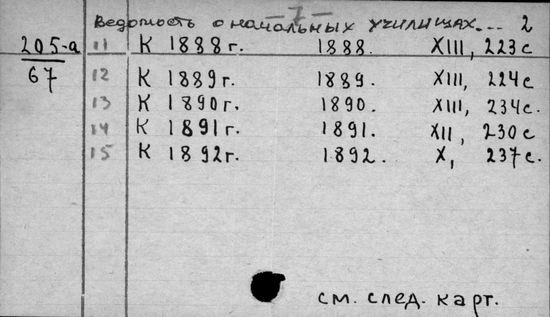 – 7 –
Ведомость о начальных училищах... 2
205-а 11 К 1888 г. 1888. XIII, 223 с
67 12 К 1889 г. 1889. XIII, 224 с
13 К 1890 г. 1890. XIII, 234 с.
14 К 1891 г. 1891. XII, 230 с
15 К 1892 г. 1892. X, 237 с.
см. след. карт.